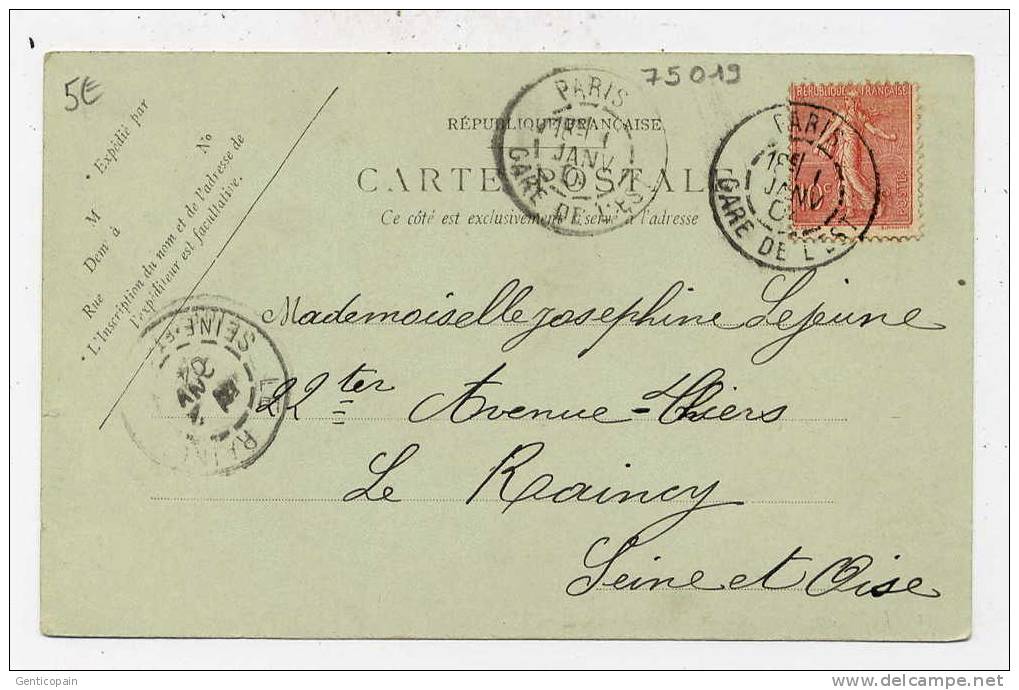 5€
75019
RÉPUBLIQUE FRANÇAISE
CARTE POSTALE
Ce côté est exclusivement réservé à l'adresse
Expédié par
M
Demt à
Rue No
L'Inscription du nom et de l'adresse de
l'expéditeur est facultative.
PARIS
JANV
GARE DE L'EST
REPUBLIQUE FRANÇAISE
10c
POSTES
PARIS
JANV
GARE DE L'EST
Mademoiselle Josephine Lejeune
22 ter Avenue-Thiers
Le Raincy
Seine et Oise
LE RAINCY
SEINE-ET
Genticopain
www.delcampe.net